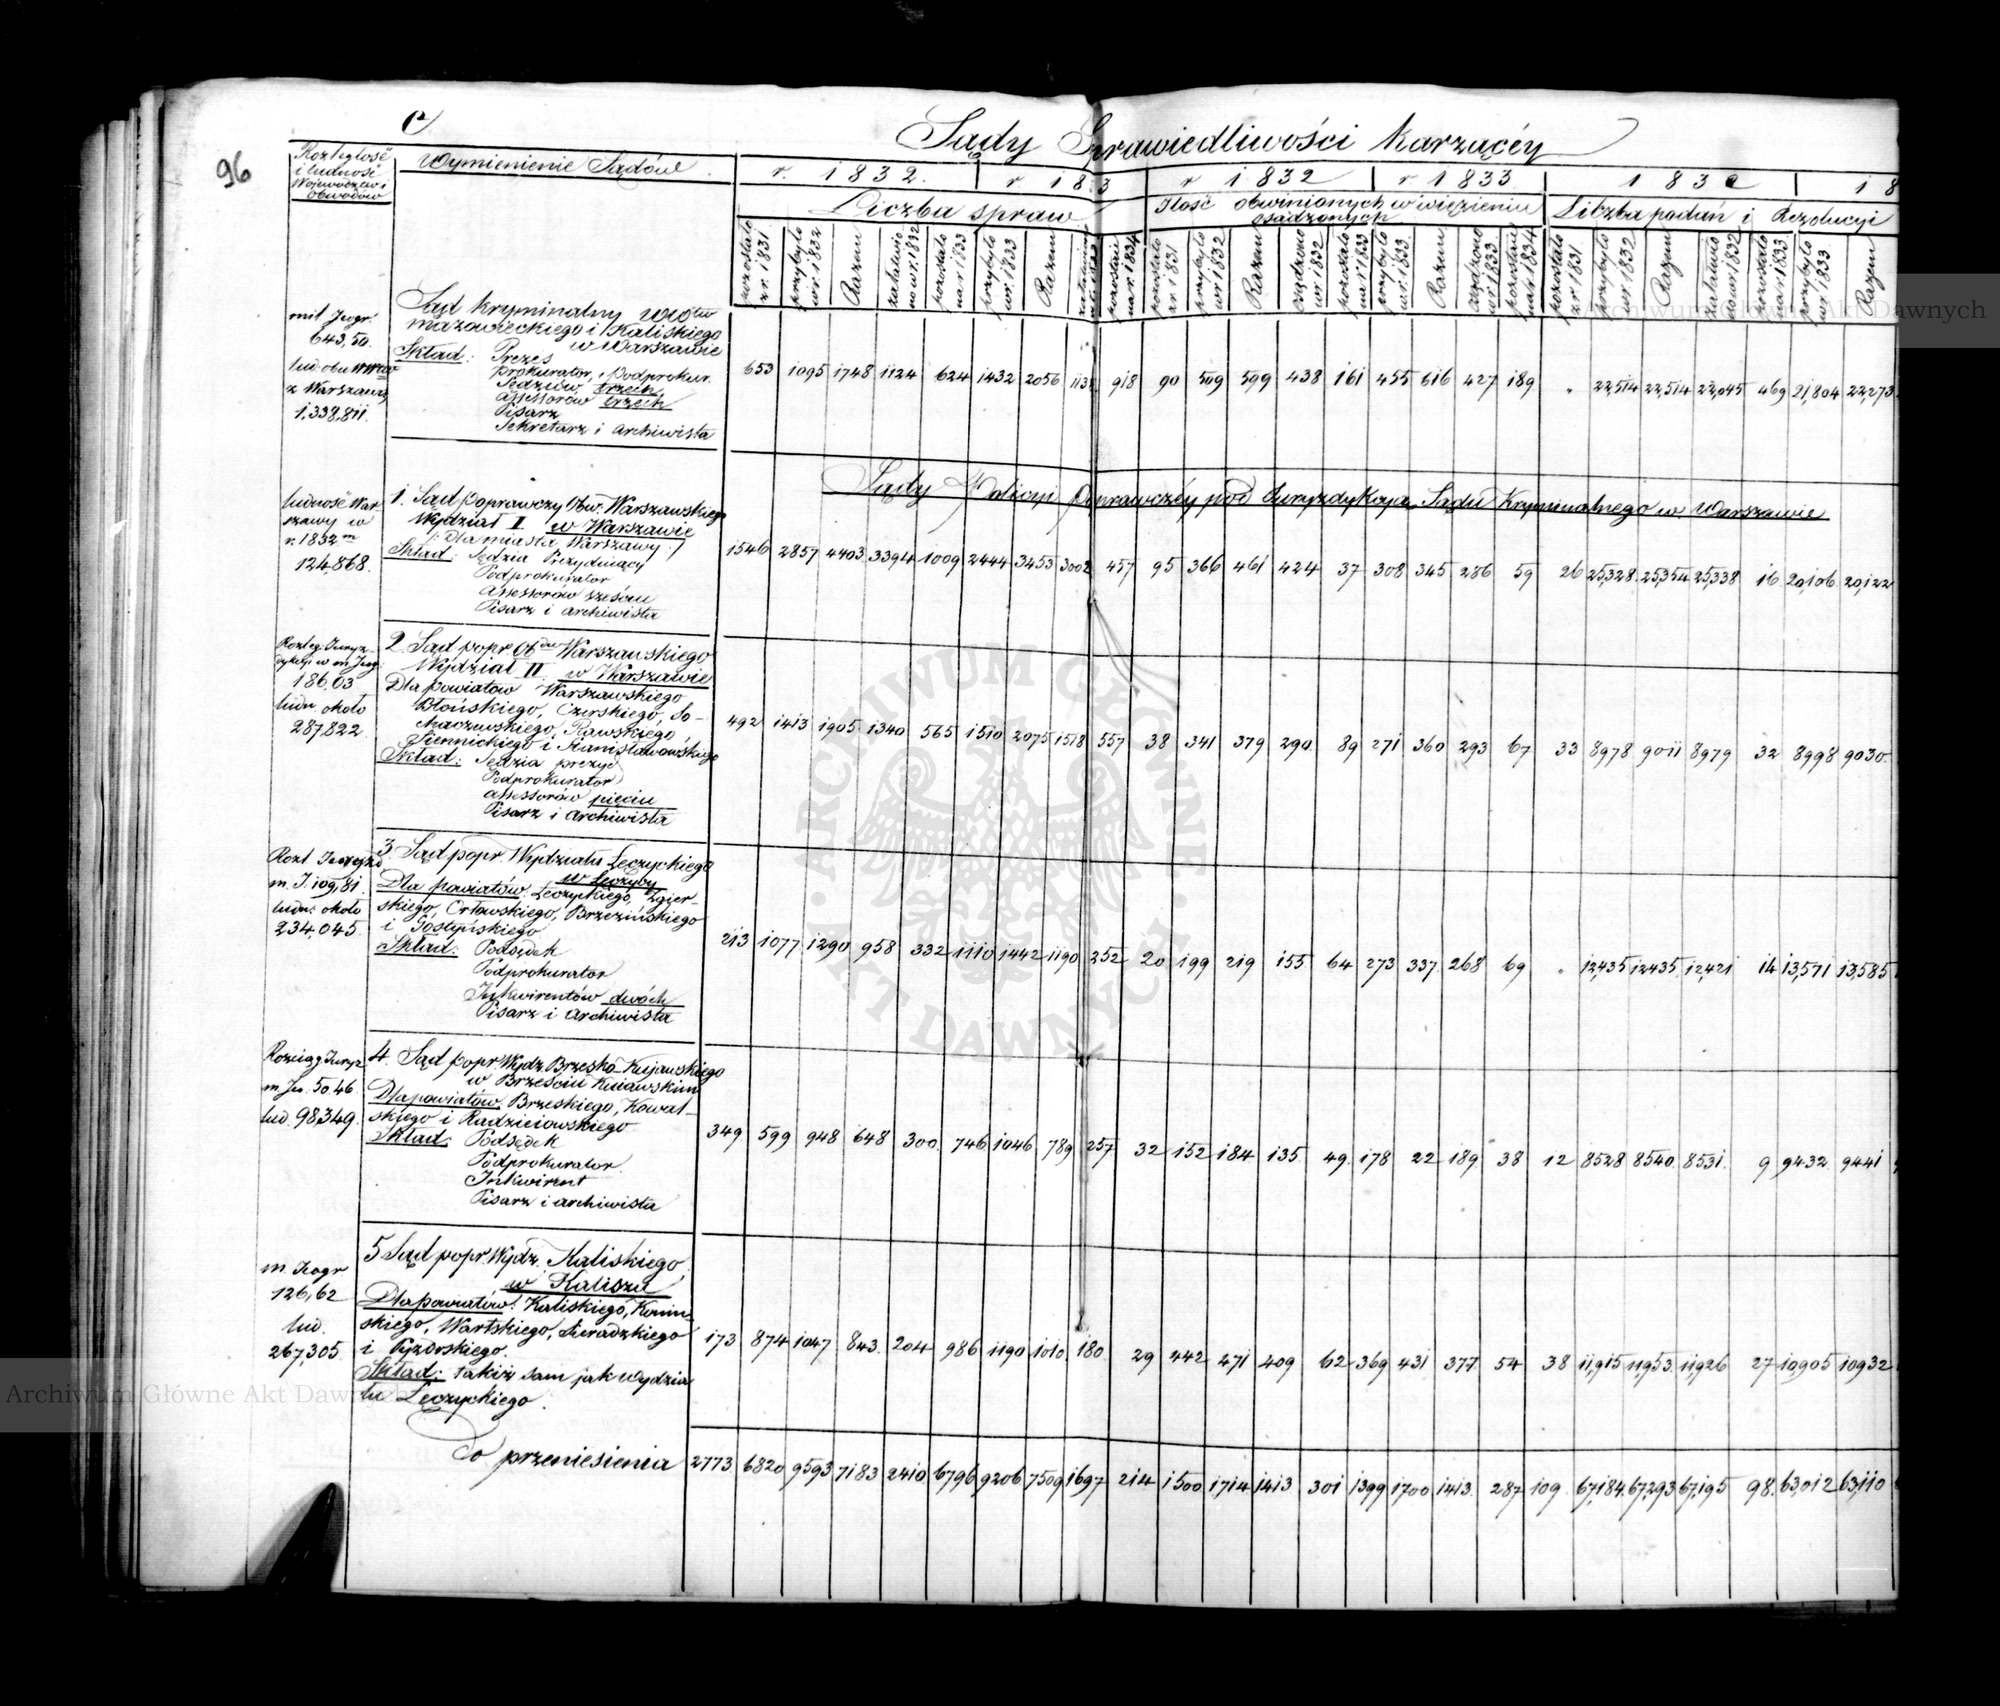 96
C
Sądy Sprawiedliwości Karzącéy
Rozległość
i ludność
Województw i
Obwodów
Wymienienie Sądów
r. 1832.
r 1833
r 1832
r 1833.
1832
18
Liczba spraw
Ilość obwinionych w więzieniu
osadzonych
Liczba podań i Rezolucyi
pozostało z r. 1831
przybyło w r. 1832
Razem
załatwiono w r. 1832
pozostało na r. 1833
przybyło w r. 1833
Razem
pozostało na r. 1834
pozostało z r. 1831
przybyło w r. 1832
Razem
osądzono w r. 1832
pozostało na r. 1833
przybyło w r. 1833.
Razem
osądzono w r. 1833
pozostało na r. 1834
pozostało z r. 1831
przybyło w r. 1832
Razem
załatwiono w r. 1832
pozostało na r. 1833
przybyło w r. 1833
Razem
mil Jeogr.
643,50.
lud. obu
z Warszawą
1,338,811.
Sąd kryminalny Wtw
mazowieckiego i Kaliskiego
w Warszawie
Skład: Prezes
Prokurator i Podprokur.
Sędziów trzech
Assessorów trzech
Pisarz
Sekretarz i Archiwista
653 1095 1748 1124 624 1432 2056 1138 918 90 509 599 438 161 455 616 427 189 " 22,514 22,514 22,045 469 21,804 22,273
Sądy Policyi Poprawczéy pod Juryzdykcyą Sądu Kryminalnego w Warszawie
ludność War
szawy w
r. 1832m
124,868.
1. Sąd Poprawczy Obw. Warszawskiego
Wydział I w Warszawie
/: Dla miasta Warszawy :/
Skład: Sędzia Prezydujący
Podprokurator
Assessorów sześciu
Pisarz i Archiwista
1546 2857 4403 3394 1009 2444 3453 3002 457 95 366 461 424 37 308 345 286 59 26 25,328 25,354 25,338 16 20,106 20,122
Rozleg. Juryz-
dykcyi w m. Jeog.
186,03
ludn. około
287,822
2. Sąd popr. Obdu Warszawskiego
Wydział II w Warszawie
Dla powiatów Warszawskiego
Błońskiego, Czerskiego, So-
chaczewskiego, Rawskiego,
Siennickiego i Stanisławowskiego
Skład: Sędzia prezyd
Podprokurator
Assessorów pięciu
Pisarz i Archiwista
492 1413 1905 1340 565 1510 2075 1518 557 38 341 379 290 89 271 360 293 67 33 8978 9011 8979 32 8998 9030
Rozl Juryzd
m. J. 109,81.
ludn: około
234,045.
3. Sąd popr. Wydziału Łęczyckiego
w Łęczycy
Dla powiatów Łęczyckiego, Zgier-
skiego, Orłowskiego, Brzezińskiego
i Gostyńskiego
Skład: Podsędek
Podprokurator
Inkwirentów dwóch
Pisarz i Archiwista
213 1077 1290 958 332 1110 1442 1190 252 20 199 219 155 64 273 337. 268 69 " 12,435 12,435 12,421 14 13,571 13,585
Rozciąg Juryz
m Je. 50.46
lud. 98,349.
4. Sąd popr. Wydz. Brzesko-Kujawskiego
w Brześciu Kuiawskim
Dla powiatów Brzeskiego, Kowal-
skiego i Radziejowskiego
Skład: Podsędek
Podprokurator.
Inkwirent
Pisarz i archiwista
349 599 948 648 300. 746 1046 789 257 32 152 184 135 49. 178 22 189 38 12 8528 8540. 8531. 9 9432. 9441
m. Jeogr
126,62
lud.
267,305.
5 Sąd popr. Wydz. Kaliskiego
w Kaliszu
Dla powiatów: Kaliskiego, Konin-
skiego, Wartskiego, Sieradzkiego
i Pyzdrskiego.
Skład: takiż sam jak wydzia
łu Łęczyckiego.
173 874 1047 843. 204 986 1190 1010 180 29 442 471 409 62 369 431 377 54 38 11,915 11,953. 11,926 27 10,905 10932
Do przeniesienia 2773 6820 9593 7183 2410 6796 9206 7509 1697 214 1500 1714 1413 301 1399 1700 1413. 287 109. 67,184 67,293 67,195 98. 63,012 63,110
Archiwum Główne Akt Dawnych
Archiwum Główne Akt Dawnych
ARCHIWUM GŁÓWNE AKT DAWNYCH